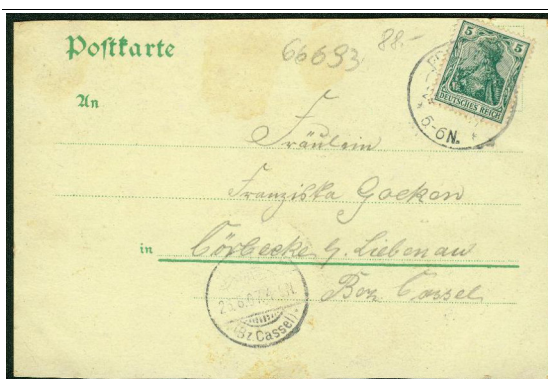 Postkarte
66693
88.-
5 5
DEUTSCHES REICH
* 5-6N. *
An
Fräulein
Franziska Gocken
in Cörbecke b. Liebenau
Bez. Cassel
(Bz. Cassel)